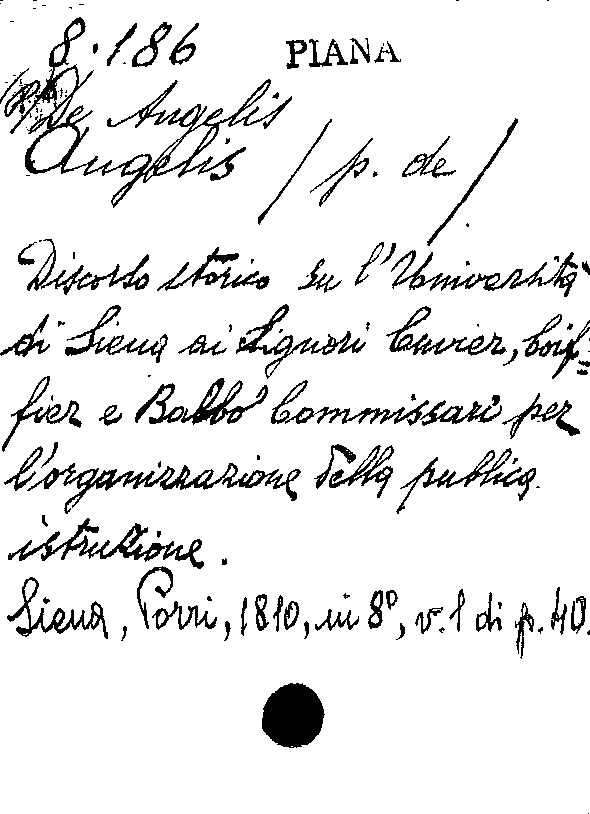 8.186 PIANA
De Angelis
Angelis / p. de /
Discorso storico su l'Università
di Siena ai Signori Cuvier, Coif=
fier e Balbo Commissari per
l'organizzazione della publica
istruzione.
Siena, Porri, 1810, in 8º, v. 1 di p. 40.